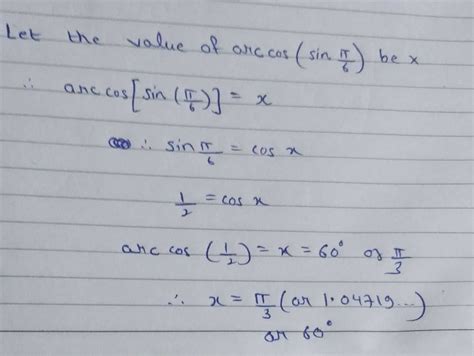 Let the value of arc cos (sin π/6) be x
∴ arc cos[sin (π/6)] = x
∴ sin π/6 = cos x
1/2 = cos x
arc cos (1/2) = x = 60° or π/3
∴ x = π/3 (or 1.04719...)
or 60°